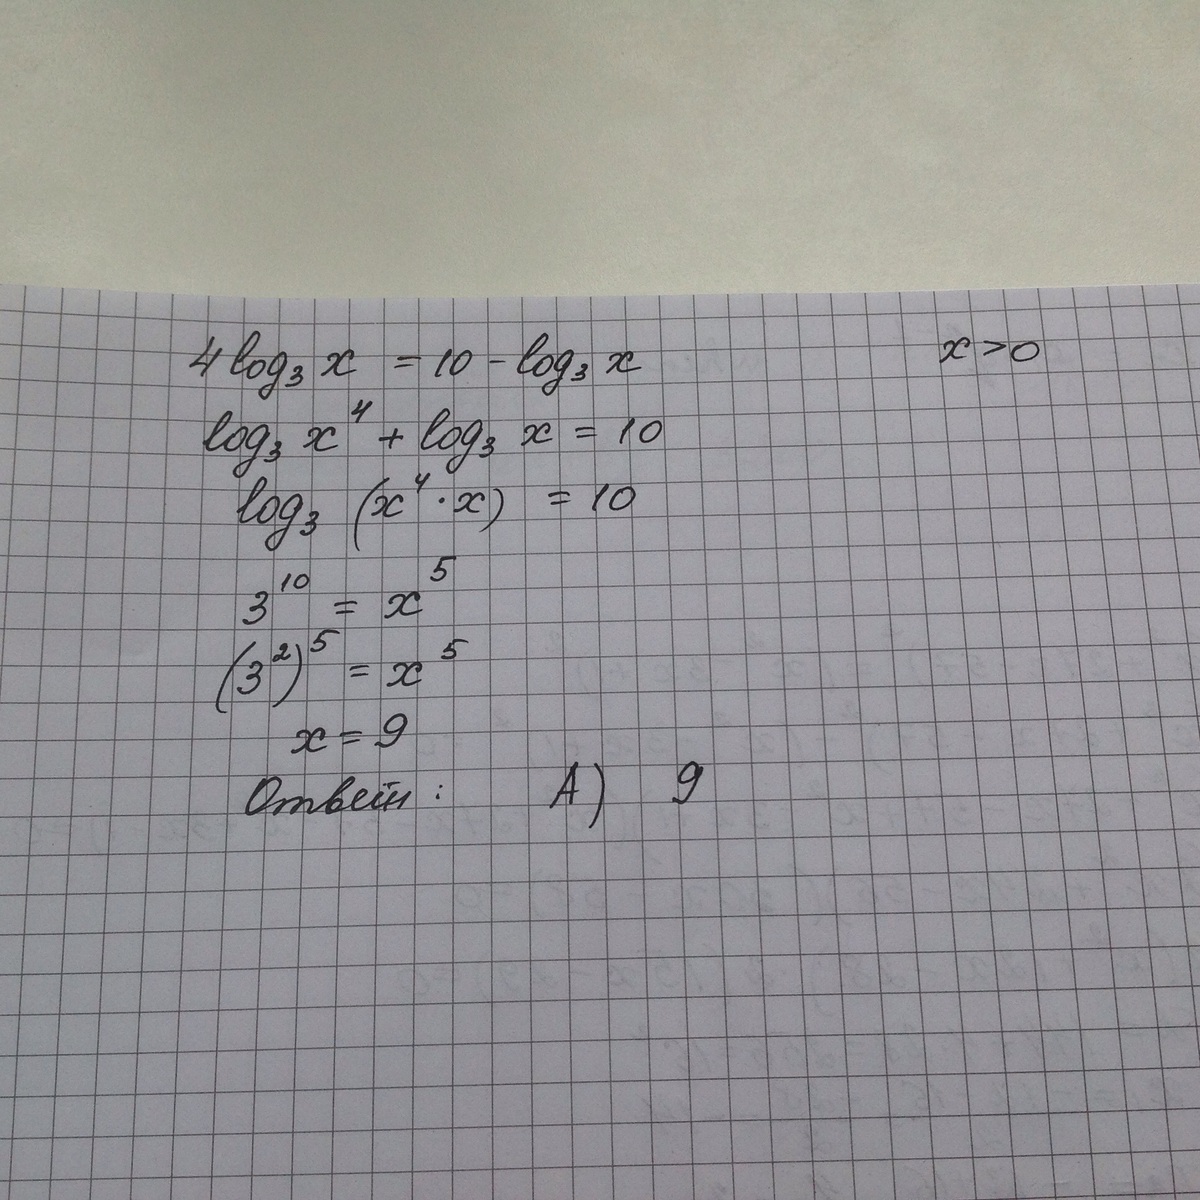 4 log₃ x = 10 − log₃ x    x > 0
log₃ x⁴ + log₃ x = 10
log₃ (x⁴ · x) = 10
3¹⁰ = x⁵
(3²)⁵ = x⁵
x = 9
Ответ: А) 9